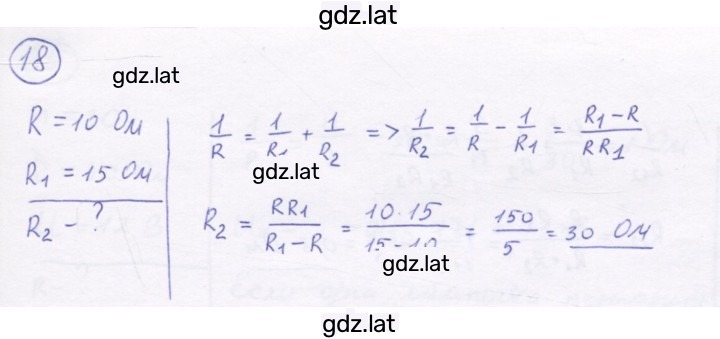 gdz.lat
18
gdz.lat
R = 10 Ом
R₁ = 15 Ом
R₂ - ?
1/R = 1/R₁ + 1/R₂ => 1/R₂ = 1/R - 1/R₁ = (R₁ - R)/(R R₁)
gdz.lat
R₂ = RR₁/(R₁ - R) = 10·15/(15 - 10) = 150/5 = 30 Ом
gdz.lat
gdz.lat